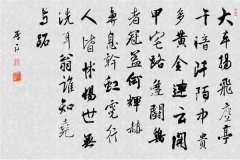 大車揚飛塵亭
午暗阡陌中貴
多黄金連雲開
甲宅路逢鬭雞
者冠蓋何輝赫
鼻息幹虹霓行
人皆怵惕世無
洗耳翁誰知堯
与跖